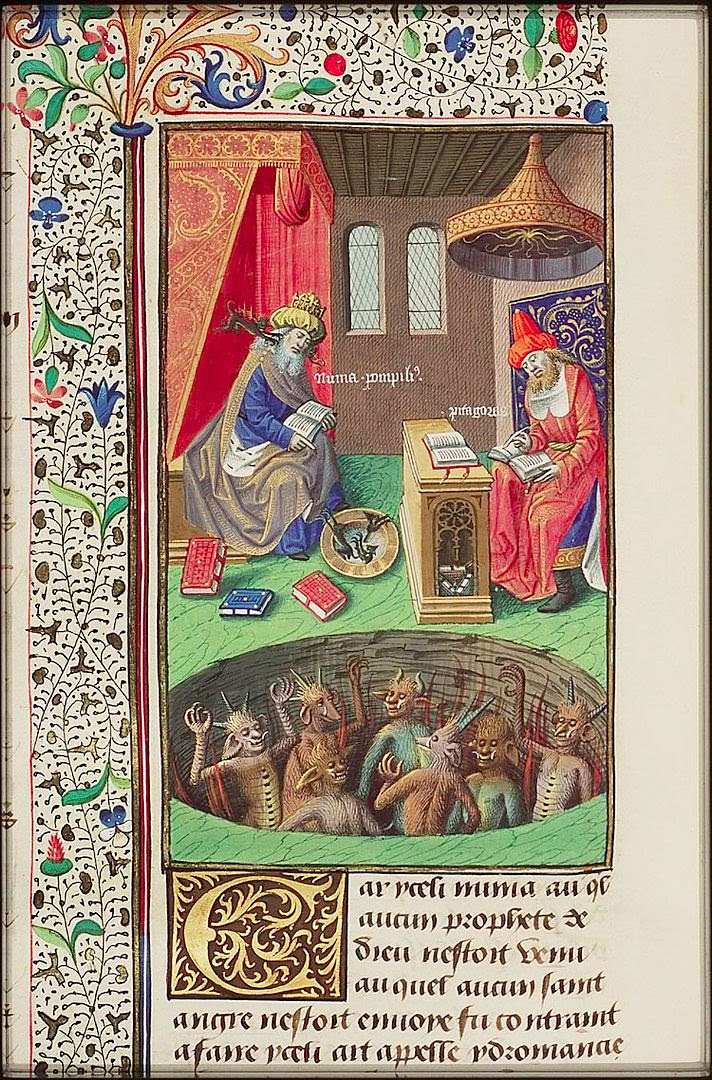 Numa · pompiliꝰ
pitagoras
Car yceli numa au ql
aucun prophete de
dieu nestoit venu
au quel aucun saint
angre nestoit enuoye fu contraint
a faire yceli art apelle ydromancie